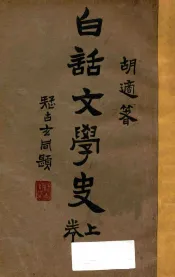 胡適著
白話文學史 上卷
疑古玄同題